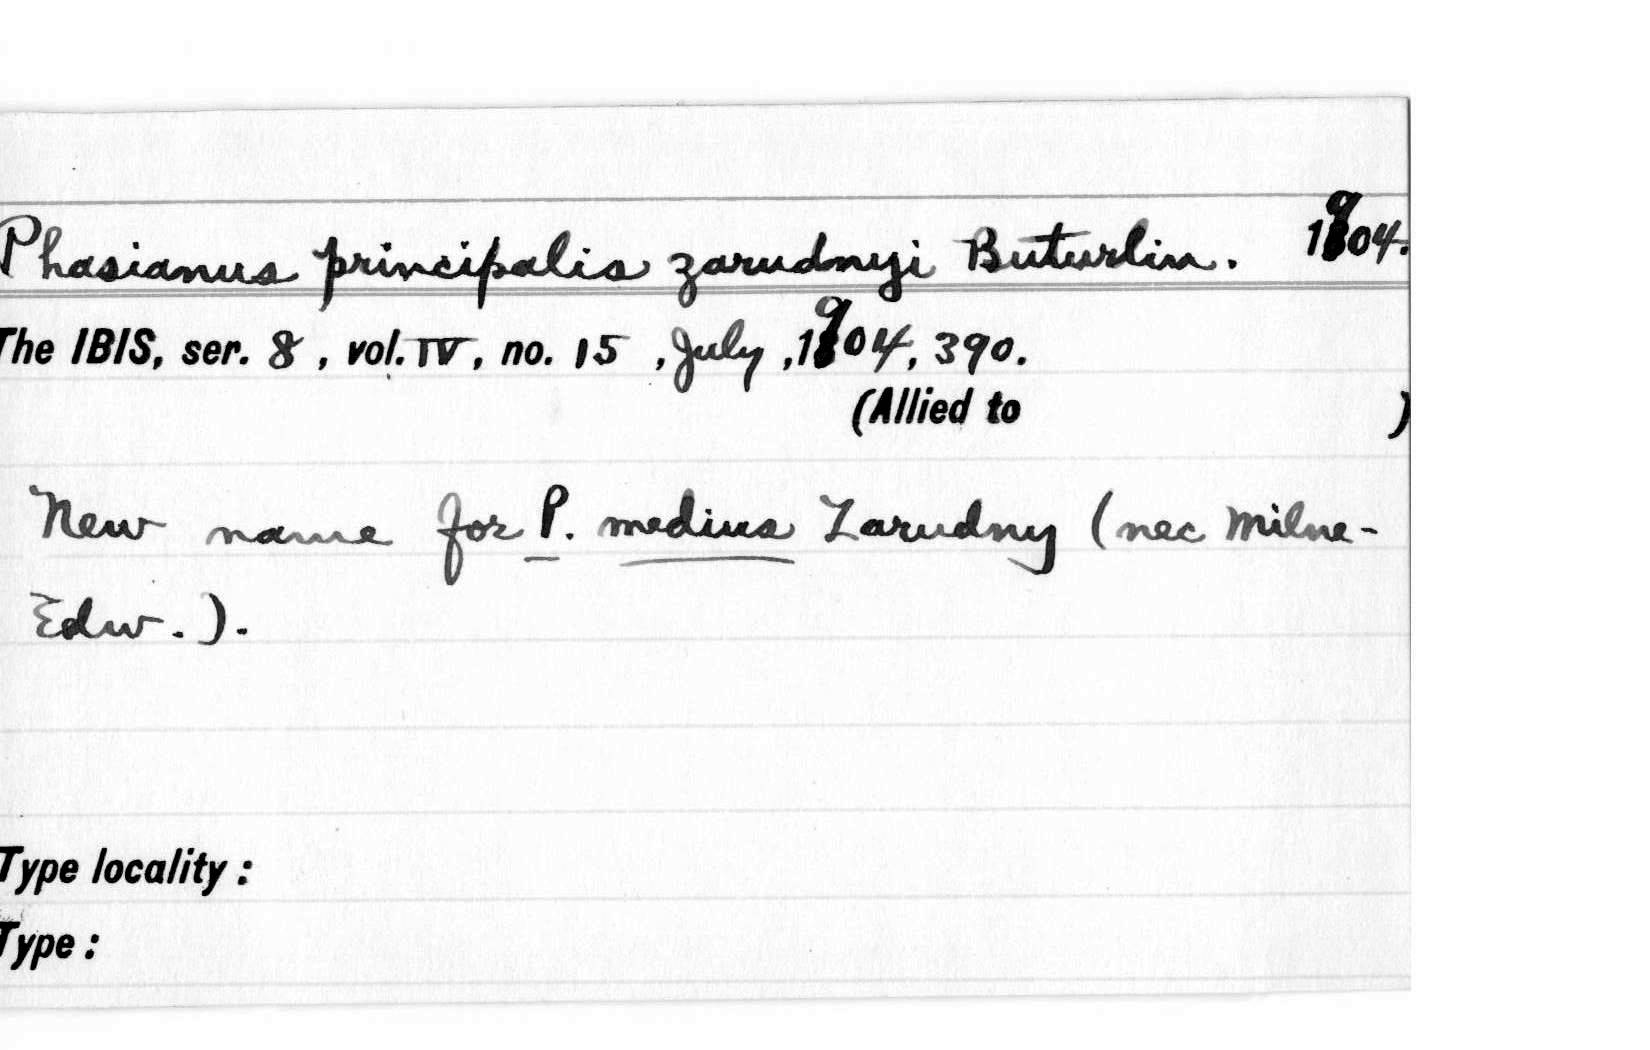 Phasianus principalis zarudnyi Buturlin. 1904.
The IBIS, ser. 8, vol. IV, no. 15, July, 1904, 390.
(Allied to )
New name for P. medius Zarudny (nec Milne-
Edw.).
Type locality:
Type: